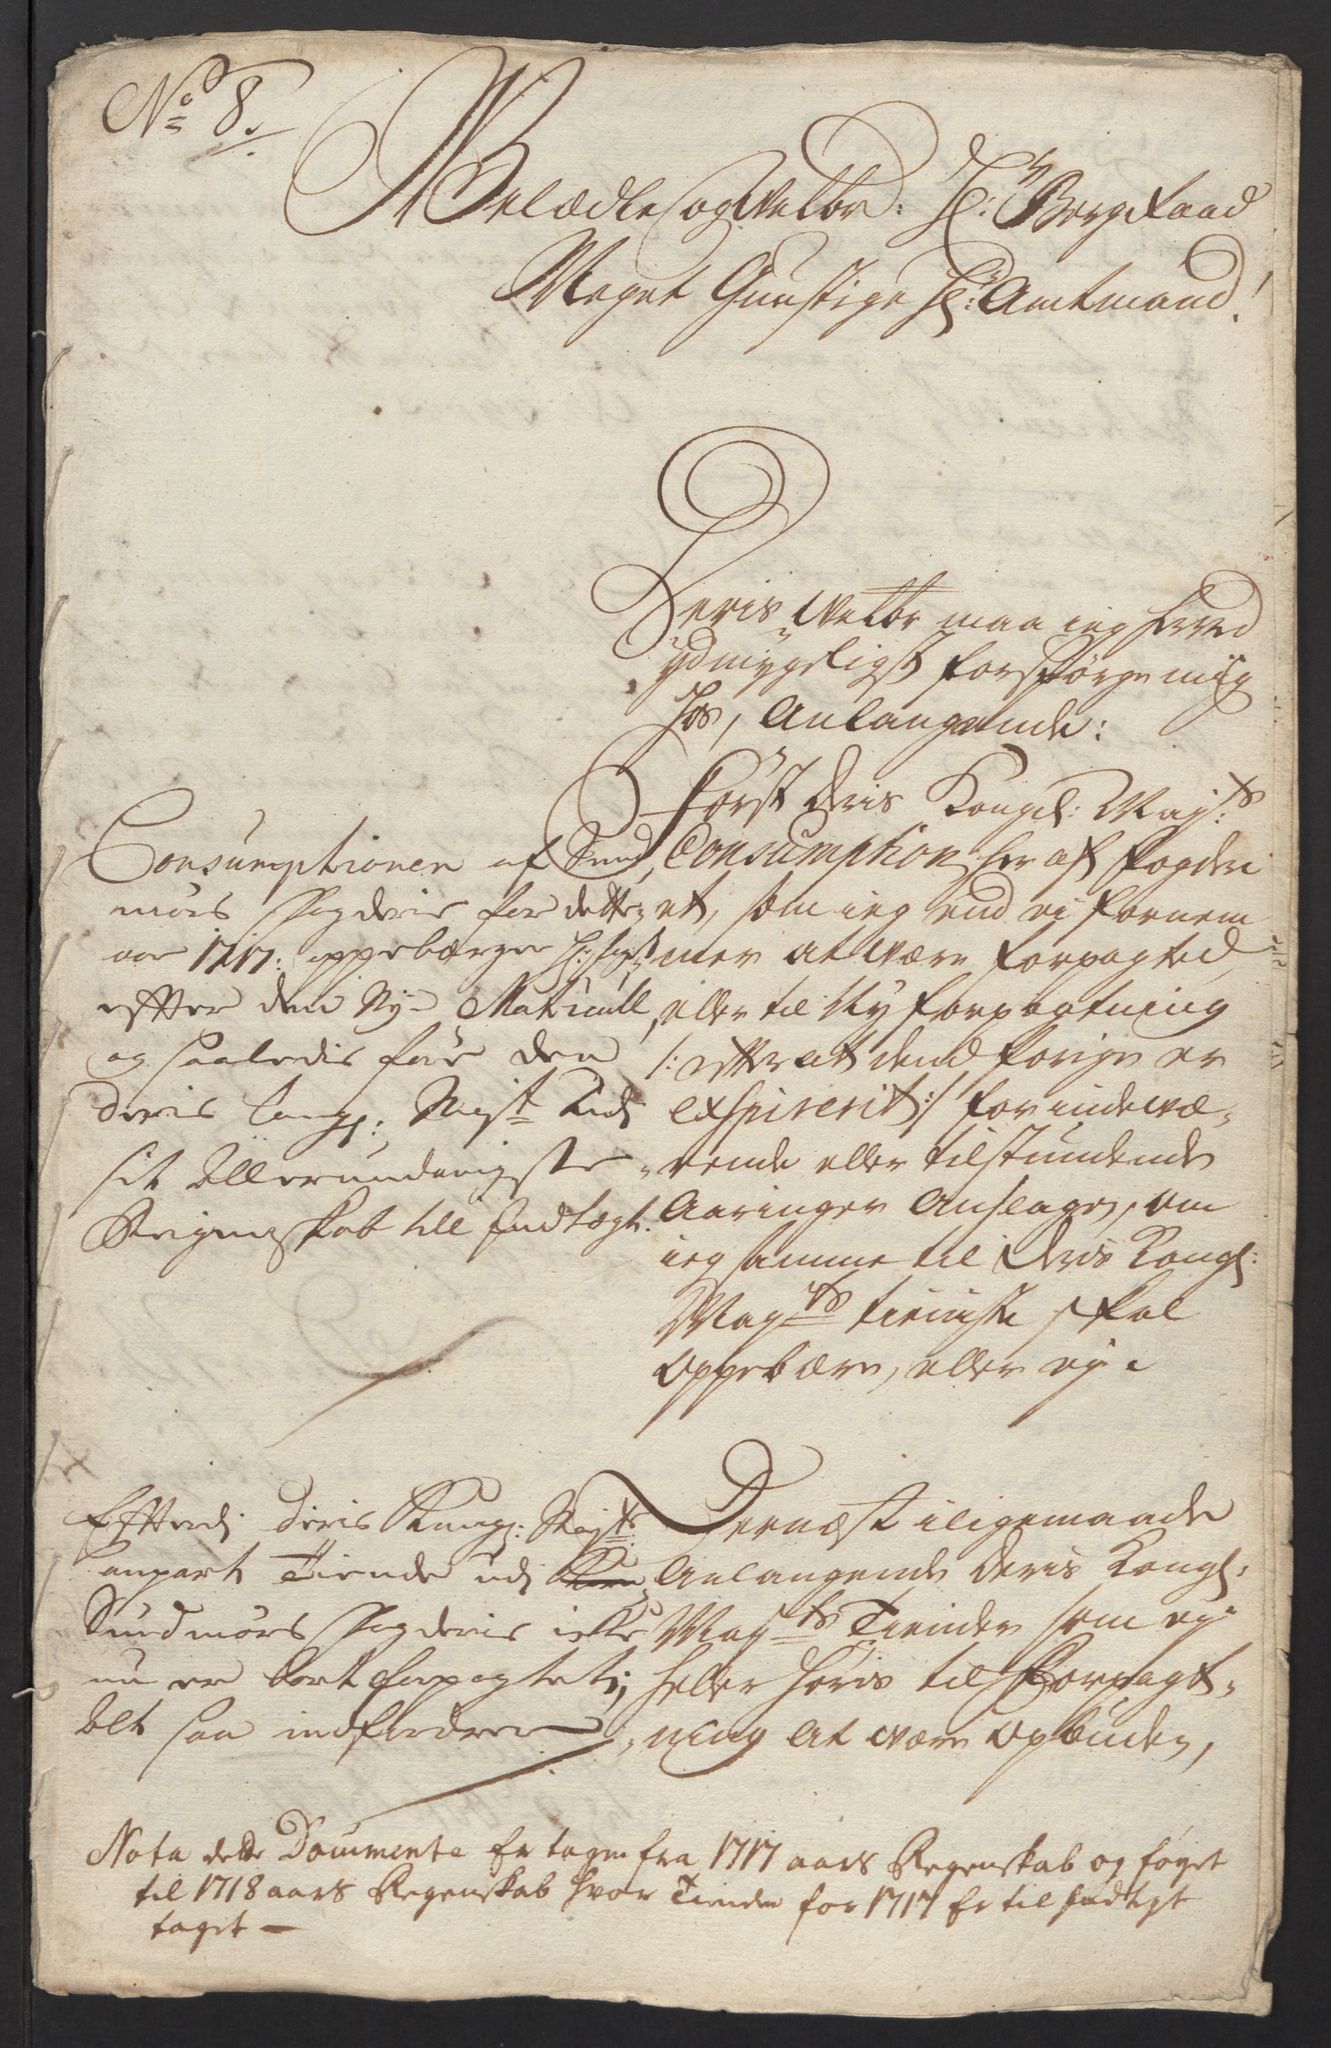 No 8.
Welædle og Welbr: Hr: BergRaad
Meget Gunstige Hr: Amtmand!
Deris Welbr maa ieg herved
ydmygeligst forspørge mig
hos, Anlangende:
Først Deris Kongl: May:ts
Consumption her af Fogderi
et, som ieg end ei fornem
mer at være forpagted
eller til Ny forpagtning
/: efter at dend forige er
exspirerit :/ for indevæ-
rende eller tilstundende
Aaringer Anslagen, om
ieg samme til Deris Kongl:
May:ts tieniste skal
Oppebære, eller ey.
Consumptionen af Sund
mørs Fogderie for dette
aar 1717: oppebærger H: Fogd
efter den Ny Matricull
og saaledis før den
Deris Kongl: Mayt til
sit Allerunderdanigste
Reignskab till Indtægt.
Dernæst iligemaade
Anlangende Deris Kongl:
May:ts Tiender som ey
heller høris til Forpagt-
ning At være Opbuden,
Efterdj Deris Kongl: May:ts
anpart Tiende udj
Sundmørs Fogderie icke
nu er bort forpagtet,
Alt saa indfordrer
Nota dette Documente Er tagen fra 1717 aars Regenskab og føyet
til 1718 aars Regenskab hvor Tienden for 1717 Er til Indtegt
taget —